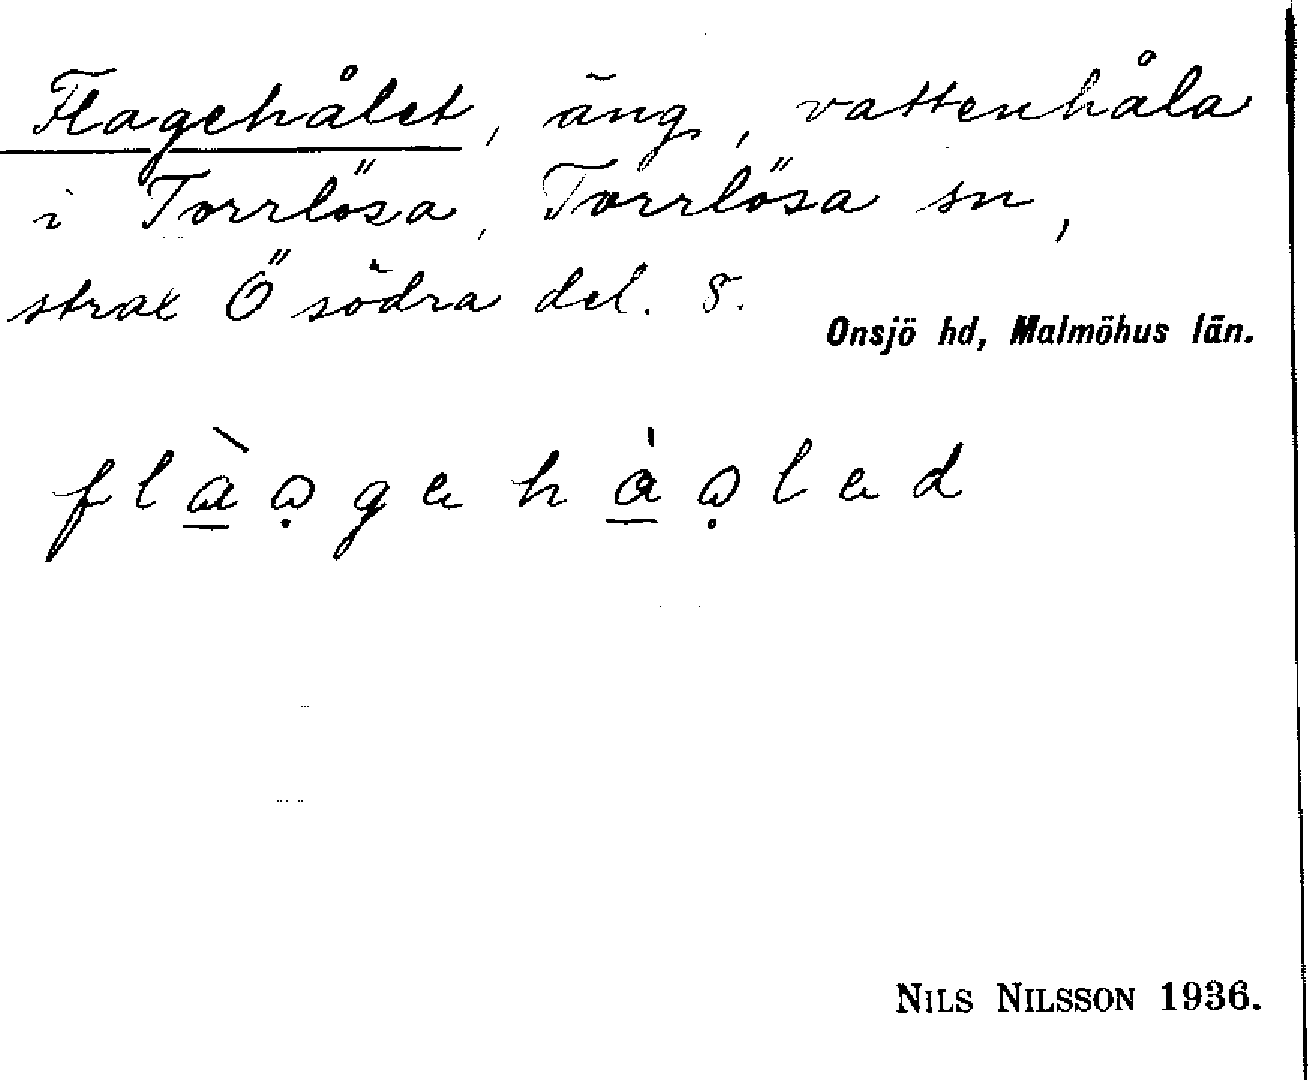 Flagehålet, äng, vattenhåla
i Torrlösa, Torrlösa sn,
strax Ö södra del. 8.
Onsjö hd, Malmöhus län.
NILS NILSSON 1936.